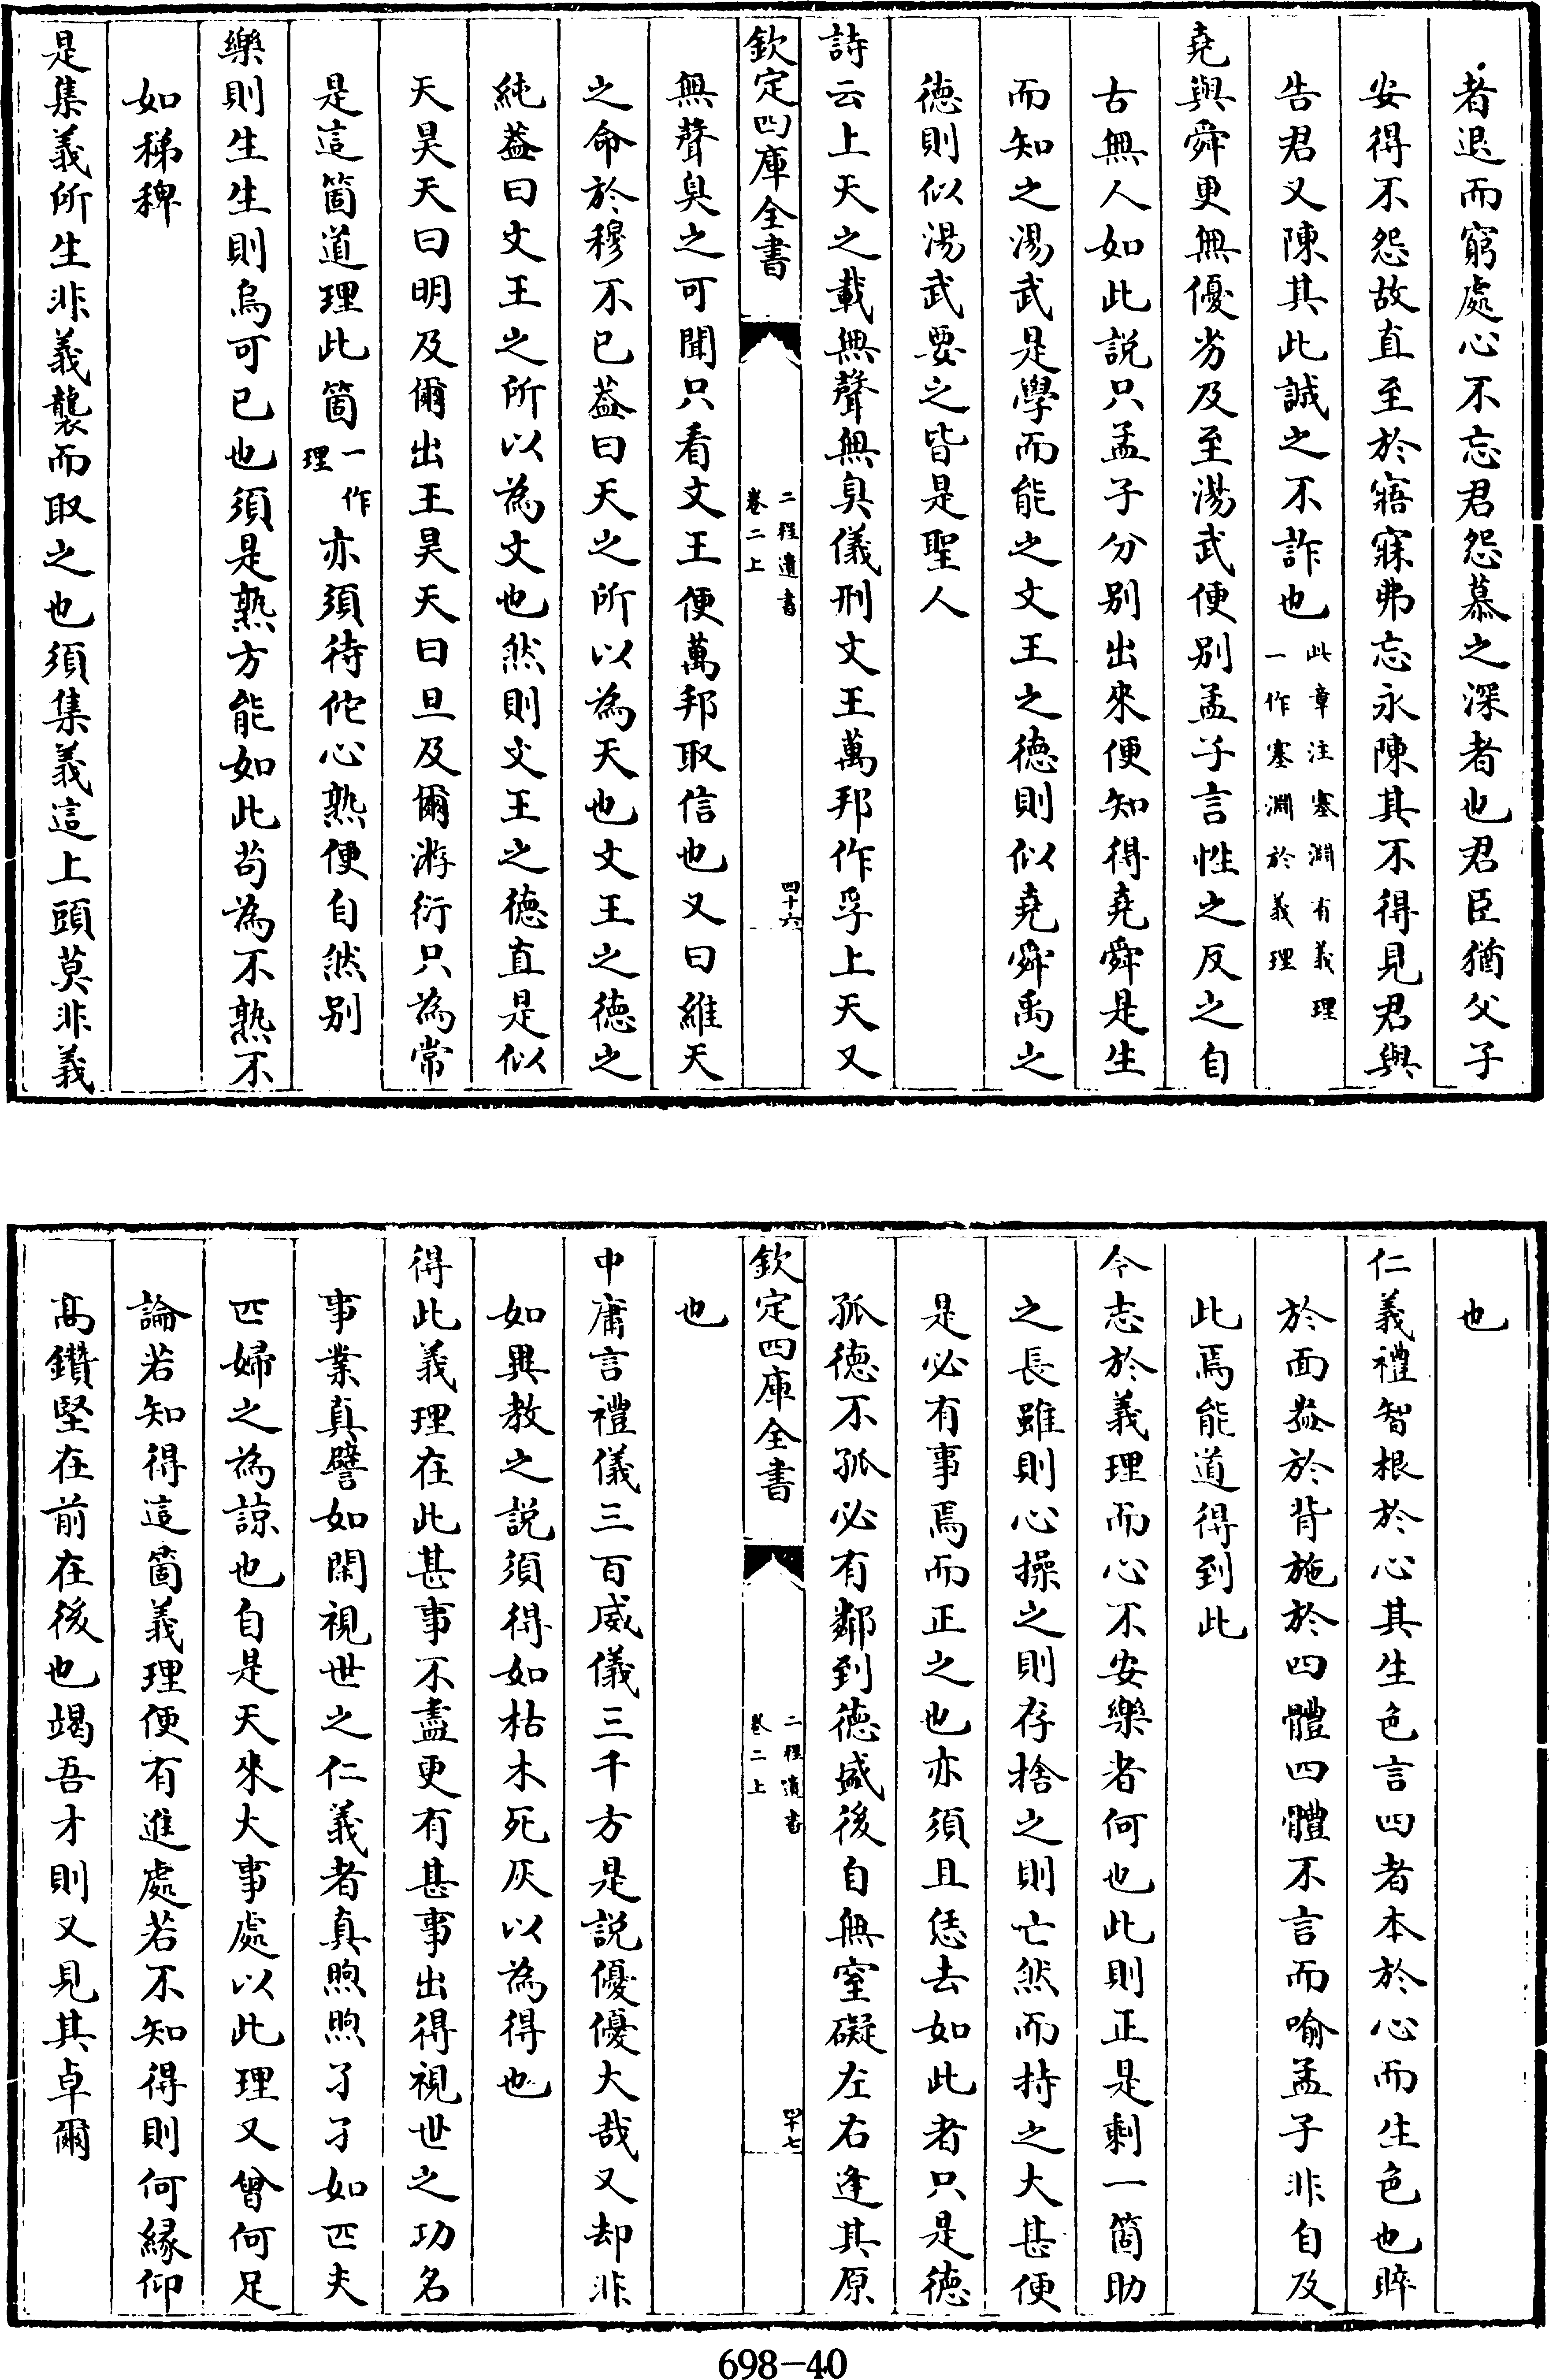 者退而窮處心不忘君怨慕之深者也君臣猶父子
安得不怨故直至於寤寐弗忘永陳其不得見君與
告君又陳其此誠之不詐也此章注塞淵有義理
一作塞淵於義理
堯與舜更無優劣及至湯武便別孟子言性之反之自
古無人如此説只孟子分別出來便知得堯舜是生
而知之湯武是學而能之文王之德則似堯舜禹之
德則似湯武要之皆是聖人
詩云上天之載無聲無臭儀刑文王萬邦作孚上天又
欽定四庫全書
二程遺書
卷二上
四十六
無聲臭之可聞只看文王便萬邦取信也又曰維天
之命於穆不已葢曰天之所以為天也文王之德之
純葢曰文王之所以為文也然則文王之德直是似
天昊天曰明及爾出王昊天曰旦及爾游衍只為常
是這箇道理此箇一作
理亦須待佗心熟便自然別
樂則生生則烏可已也須是熟方能如此苟為不熟不
如稊稗
是集義所生非義襲而取之也須集義這上頭莫非義
也
仁義禮智根於心其生色言四者本於心而生色也睟
於面盎於背施於四體四體不言而喻孟子非自及
此焉能道得到此
今志於義理而心不安樂者何也此則正是剩一箇助
之長雖則心操之則存捨之則亡然而持之大甚便
是必有事焉而正之也亦須且恁去如此者只是德
孤德不孤必有鄰到德盛後自無窒礙左右逢其原
欽定四庫全書
二程遺書
卷二上
四十七
也
中庸言禮儀三百威儀三千方是説優優大哉又却非
如異教之説須得如枯木死灰以為得也
得此義理在此甚事不盡更有甚事出得視世之功名
事業真譬如閑視世之仁義者真煦煦孑孑如匹夫
匹婦之為諒也自是天來大事處以此理又曾何足
論若知得這箇義理便有進處若不知得則何緣仰
高鑽堅在前在後也竭吾才則又見其卓爾
698-40